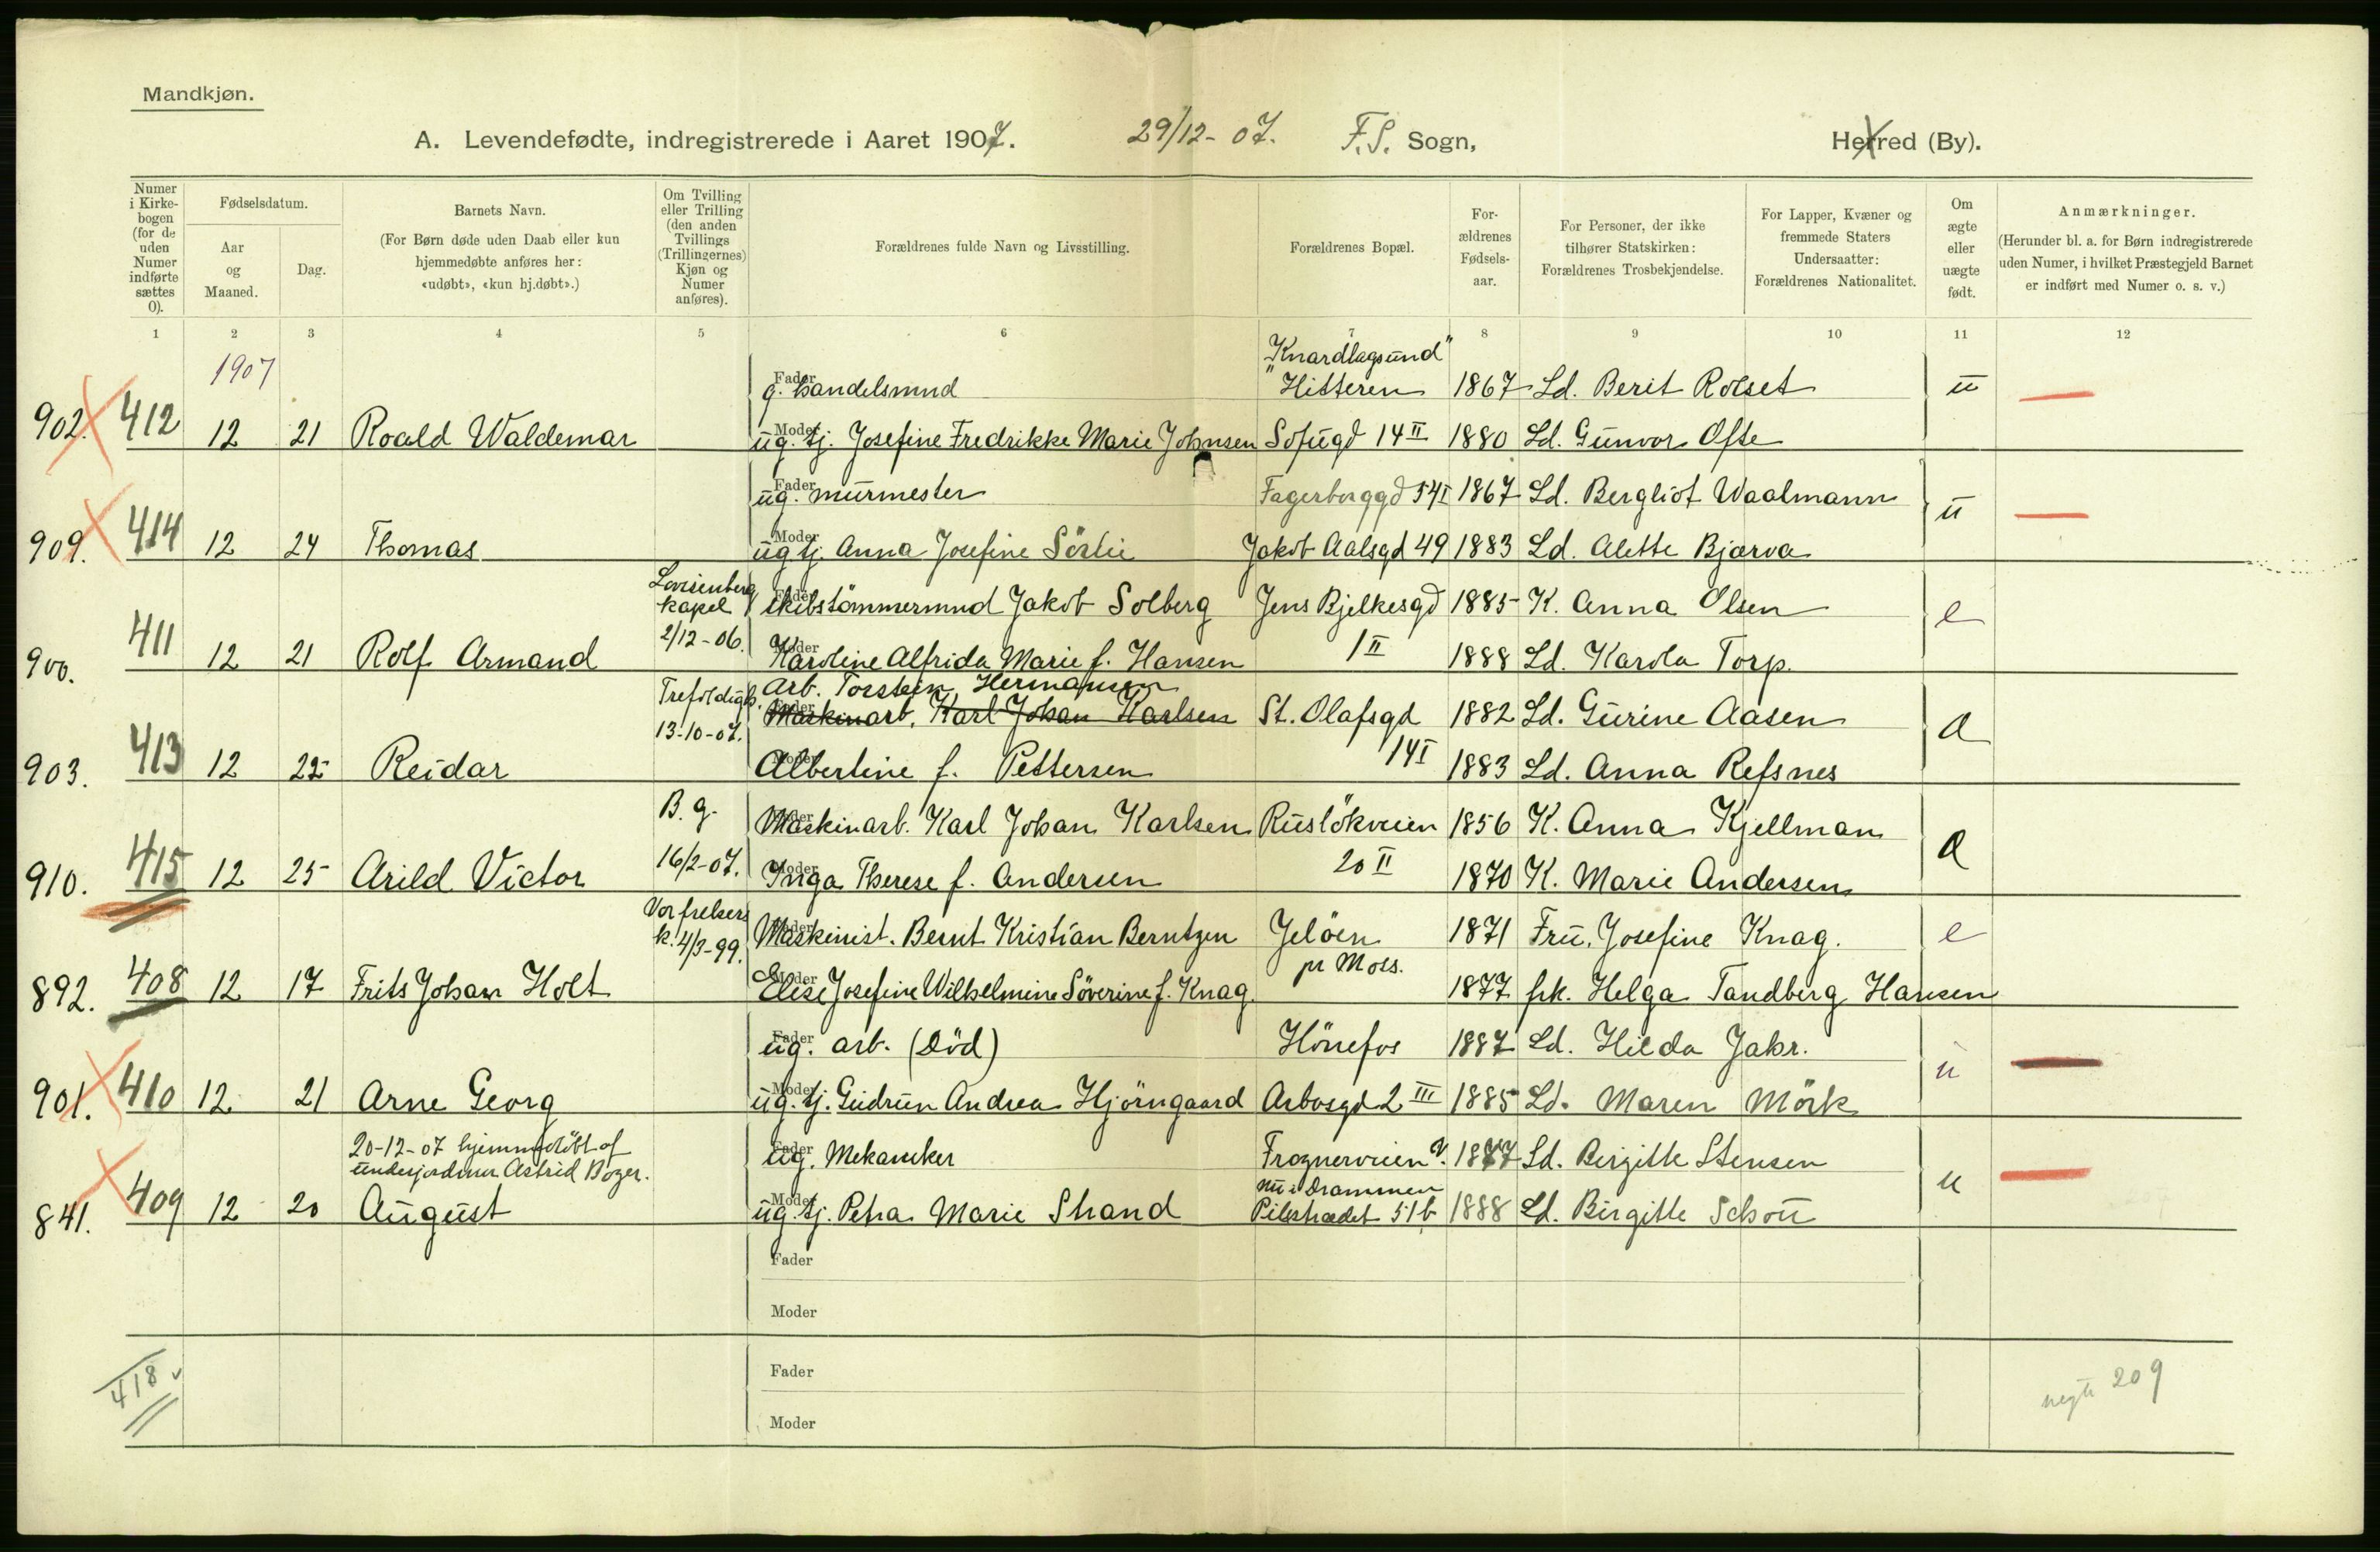 Mandkjøn.
A. Levendefødte, indregistrerede i Aaret 1907. 29/12-07. F.S. Sogn, Herred (By).
Numer i Kirkebogen (for de uden Numer indførte sættes 0).
Fødselsdatum.
Aar og Maaned.
Dag.
Barnets Navn.
(For Børn døde uden Daab eller kun hjemmedøbte anføres her: «udøbt», «kun hj.døbt».)
Om Tvilling eller Trilling (den anden Tvillings (Trillingernes) Kjøn og Numer anføres).
Forældrenes fulde Navn og Livsstilling.
Forældrenes Bopæl.
Forældrenes Fødselsaar.
For Personer, der ikke tilhører Statskirken: Forældrenes Trosbekjendelse.
For Lapper, Kvæner og fremmede Staters Undersaatter: Forældrenes Nationalitet.
Om ægte eller uægte født.
Anmærkninger.
(Herunder bl. a. for Børn indregistrerede uden Numer, i hvilket Præstegjeld Barnet er indført med Numer o. s. v.)
1 2 3 4 5 6 7 8 9 10 11 12
1907
"Knardlagsund"
Fader g. handelsmnd "Hitteren 1867 Ld. Berit Rolset u
902. 412 12 21 Roald Waldemar Moder ug. tj. Josefine Fredrikke Marie Johnsen Sofiegd 14 II 1880 Ld. Gunvor Ofte
Fader ug. murmester Fagerborggd 54 I 1867 Ld. Bergliot Waalmann u
909. 414 12 24 Thomas Moder ug tj. Anna Josefine Sörlie Jakob Aalsgd 49 1883 Ld. Alette Bjærva
Lovisenberg kapel Fader skibstömmermnd Jakob Solberg Jens Bjelkesgd 1885 K. Anna Olsen e
900. 411 12 21 Rolf Armand 2/12-06. Moder Karoline Alfrida Marie f. Hansen 1 II 1888 Ld. Karola Torp.
Trefoldigh. Arb. Torstein Hermansen
Fader Maskinarb. Karl Johan Karlsen St. Olafsgd 1882 Ld. Gurine Aasen a
903. 413 12 22 Reidar 13-10-07. Moder Albertine f. Pettersen 14 I 1883 Ld. Anna Refsnes
B.g. Fader Maskinarb. Karl Johan Karlsen Ruslökveien 1856 K. Anna Kjellman a
910. 415 12 25 Arild Victor 16/2-07. Moder Inga Therese f. Andersen 20 II 1870 K. Marie Andersen
Vor frelsers Fader Maskinist. Bernt Kristian Berntzen Jelöen 1871 Fru. Josefine Knag. e
k. 4/3-99. pr Moss.
892. 408 12 17 Frits Johan Holt Moder Elise Josefine Wilhelmine Söverine f. Knag. 1877 frk. Helga Tandberg Hansen
Fader ug. arb. (död) Hönefos 1887 Ld. Hilda Jahr. u
901. 410 12 21 Arne Georg Moder ug. tj. Gudrun Andrea Hjörngaard Arbosgd 2 III 1885 Ld. Maren Mörk
20-12-07 hjemmedöbt af Fader ug. Mekaniker Frognerveien ?. 1877 Ld. Birgitte Stensen u
underjordmor Astrid Bozer. nu i Drammen
841. 409 12 20 August Moder ug. tj. Petra Marie Strand Pilestrædet 51b 1888 Ld. Birgitte Schou
Fader
Moder
Fader
418
uegte 209
Moder